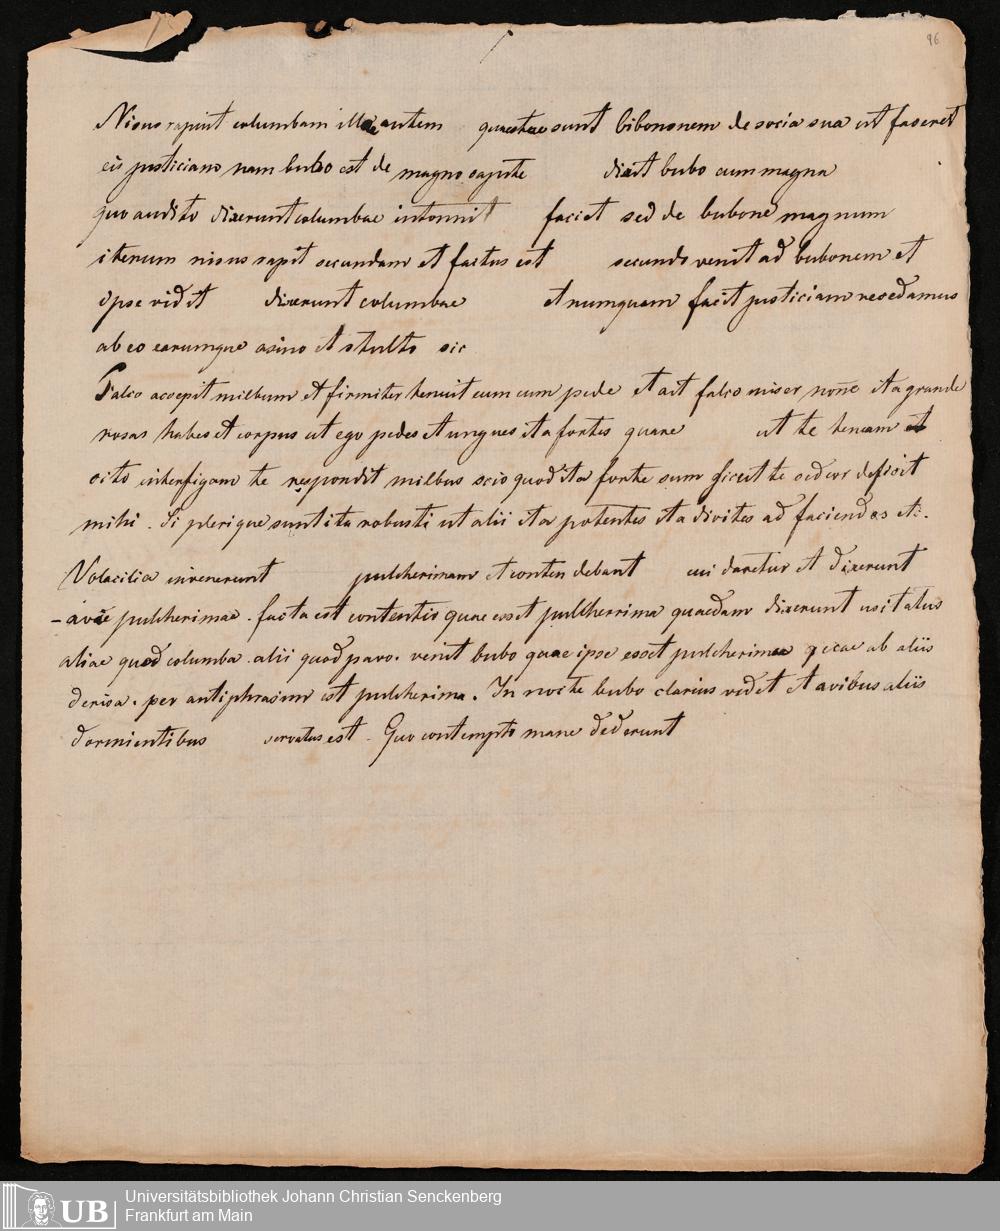 96
Nisus rapuit columbam illae autem quaestae sunt bibononem de socia sua ut faceret
eis justiciam nam bubo est de magno capite dixit bubo cum magna
quo audito dixerunt columbae intonnit faciet sed de bubone magnum
iterum nisus rapit secundam et factus est secundo venit ad bubonem et
ipse vidit dixerunt columbae et numquam facit justiciam recedamus
ab eo earumque asino et stulto sic
Falco accepit milbum et firmiter tenuit eum cum pede et ait falco miser noñe ita grande
rosas habes et corpus ut ego pedes et ungues ita fortes quare ut te teneam et
cito interfigam te respondit milbus scio quod ita forte sum sicut te sed cor deficit
mihi. Si plerique sunt ita robusti ut alii ita potentes ita divites ad faciendas etc.
Volacilia invenerunt pulcherimam et contendebant cui daretur et dixerunt
avie pulcherimae. facta est contentio quae esset pulcherrima quaedam dixerunt usitatus
aliae quod columba. alii quod pavo. venit bubo quae ipse esset pulcherimea ab aliis
derisa. per antiphrasim est pulcherima. In nocte bubo clarius videt et avibus aliis
dormientibus servatus est. Quo contempto mane dederunt
UB Universitätsbibliothek Johann Christian Senckenberg
Frankfurt am Main